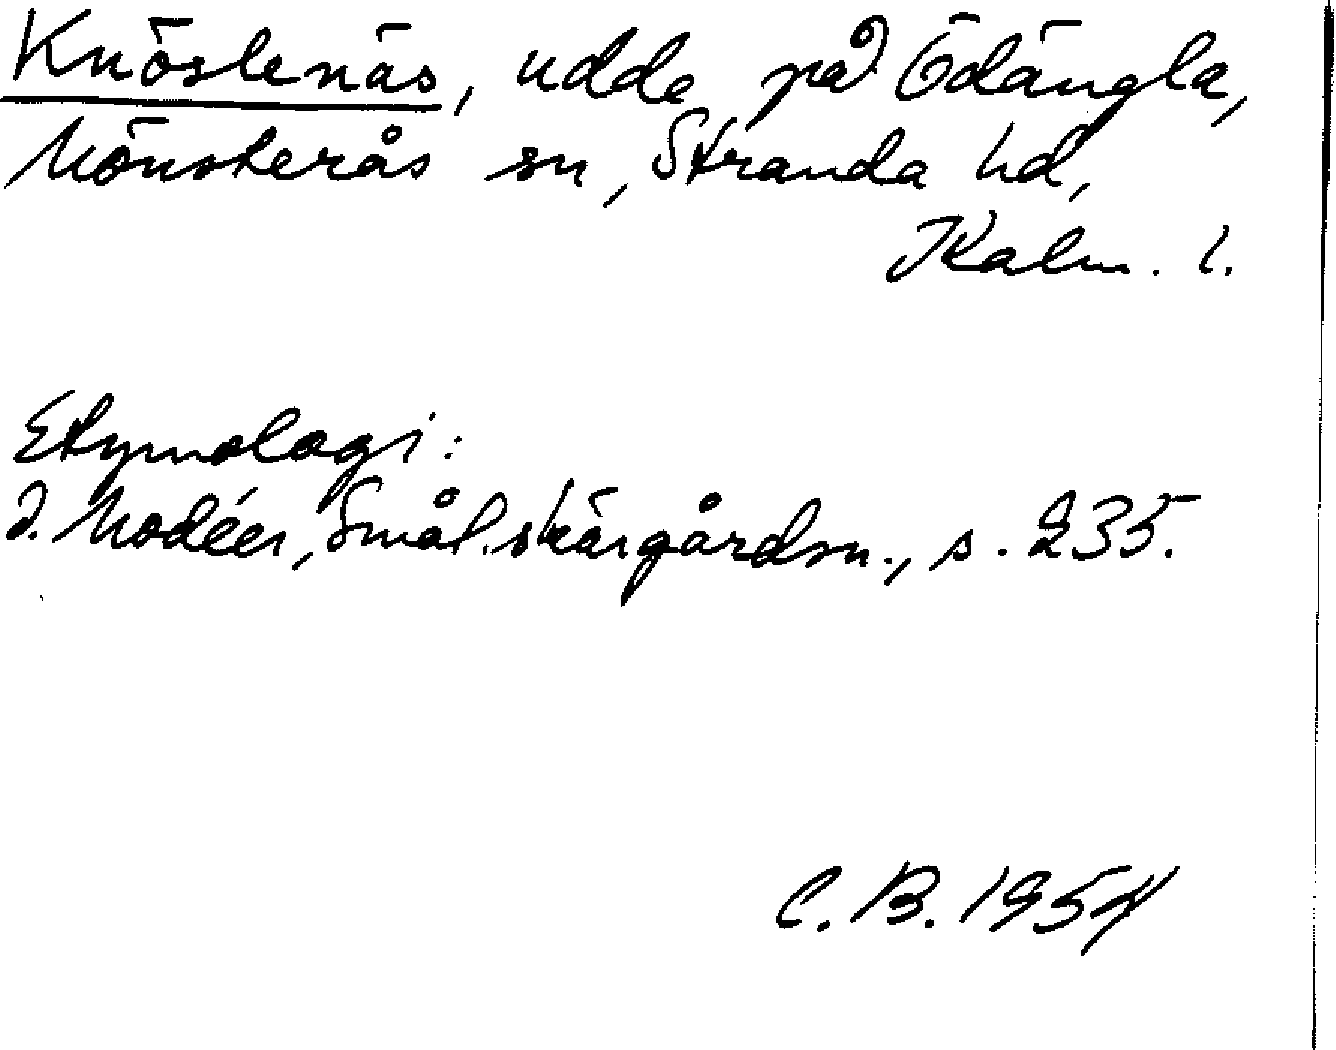 Knöslenäs, udde på Ödängla,
Mönsterås sn, Stranda hd,
Kalm. l.
Etymologi:
I. Modéer, Smål. skärgårdsn., s. 235.
C. B. 1954